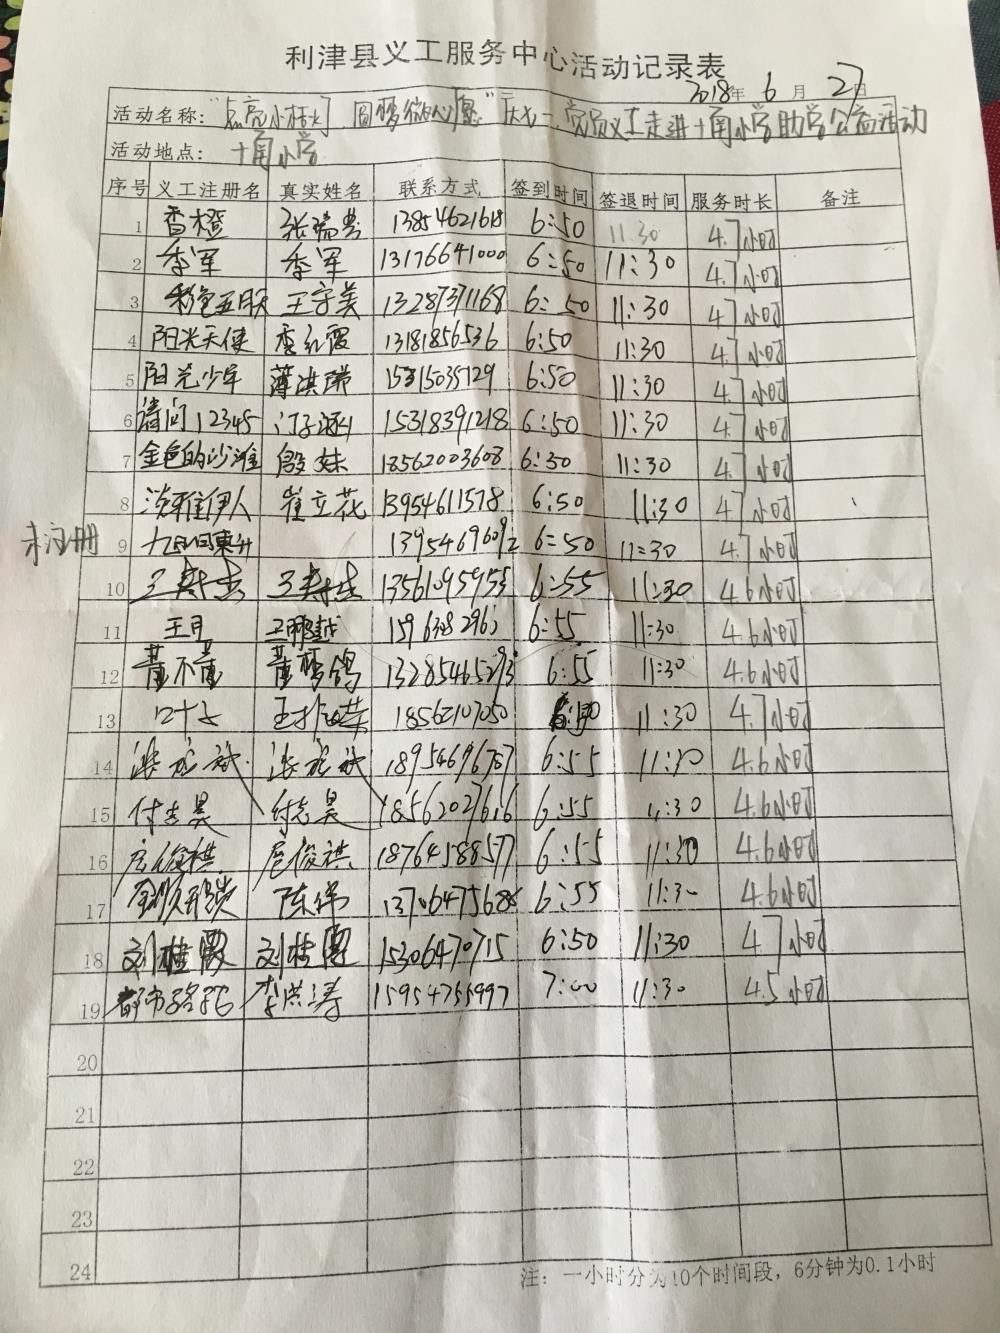 利津县义工服务中心活动记录表
2018年 6 月 27日
活动名称："点亮小桔灯、圆梦微心愿" 庆七一党员义工走进十甬小学助学公益活动
活动地点： 十甬小学
序号 义工注册名 真实姓名 联系方式 签到时间 签退时间 服务时长 备注
1 香橙 张瑞芸 13854621618 6:50 11:30 4.7小时
2 季军 季军 13176641000 6:50 11:30 4.7小时
3 彩色五月天 王守美 13287371168 6:50 11:30 4.7小时
4 阳光天使 李红霞 13181856536 6:50 11:30 4.7小时
5 阳光少年 薄洪瑞 15315035129 6:50 11:30 4.7小时
6 请问12345 15318391218 6:50 11:30 4.7小时
7 金色的沙滩 殷妹 18562003608 6:30 11:30 4.7小时
8 淡雅伊人 崔立花 13954611578 6:50 11:30 4.7小时
未注册 9 13954696092 6:50 11:30 4.7小时
10 王寿杰 王寿杰 13561095955 6:55 11:30 4.6小时
11 王月 6:55 11:30 4.6小时
12 董不董 董梦鸽 6:55 11:30 4.6小时
13 口十七 18562107050 11:30 4.7小时
14 6:55 11:30 4.6小时
15 付志昊 付志昊 6:55 11:30 4.6小时
16 扈俊祺 扈俊祺 18764588577 6:55 11:30 4.6小时
17 陈伟 6:55 11:30 4.6小时
18 刘桂霞 刘桂霞 15306470715 6:50 11:30 4.7小时
19 李洪涛 15954755997 7:00 11:30 4.5小时
20
21
22
23
24
注：一小时分为10个时间段，6分钟为0.1小时